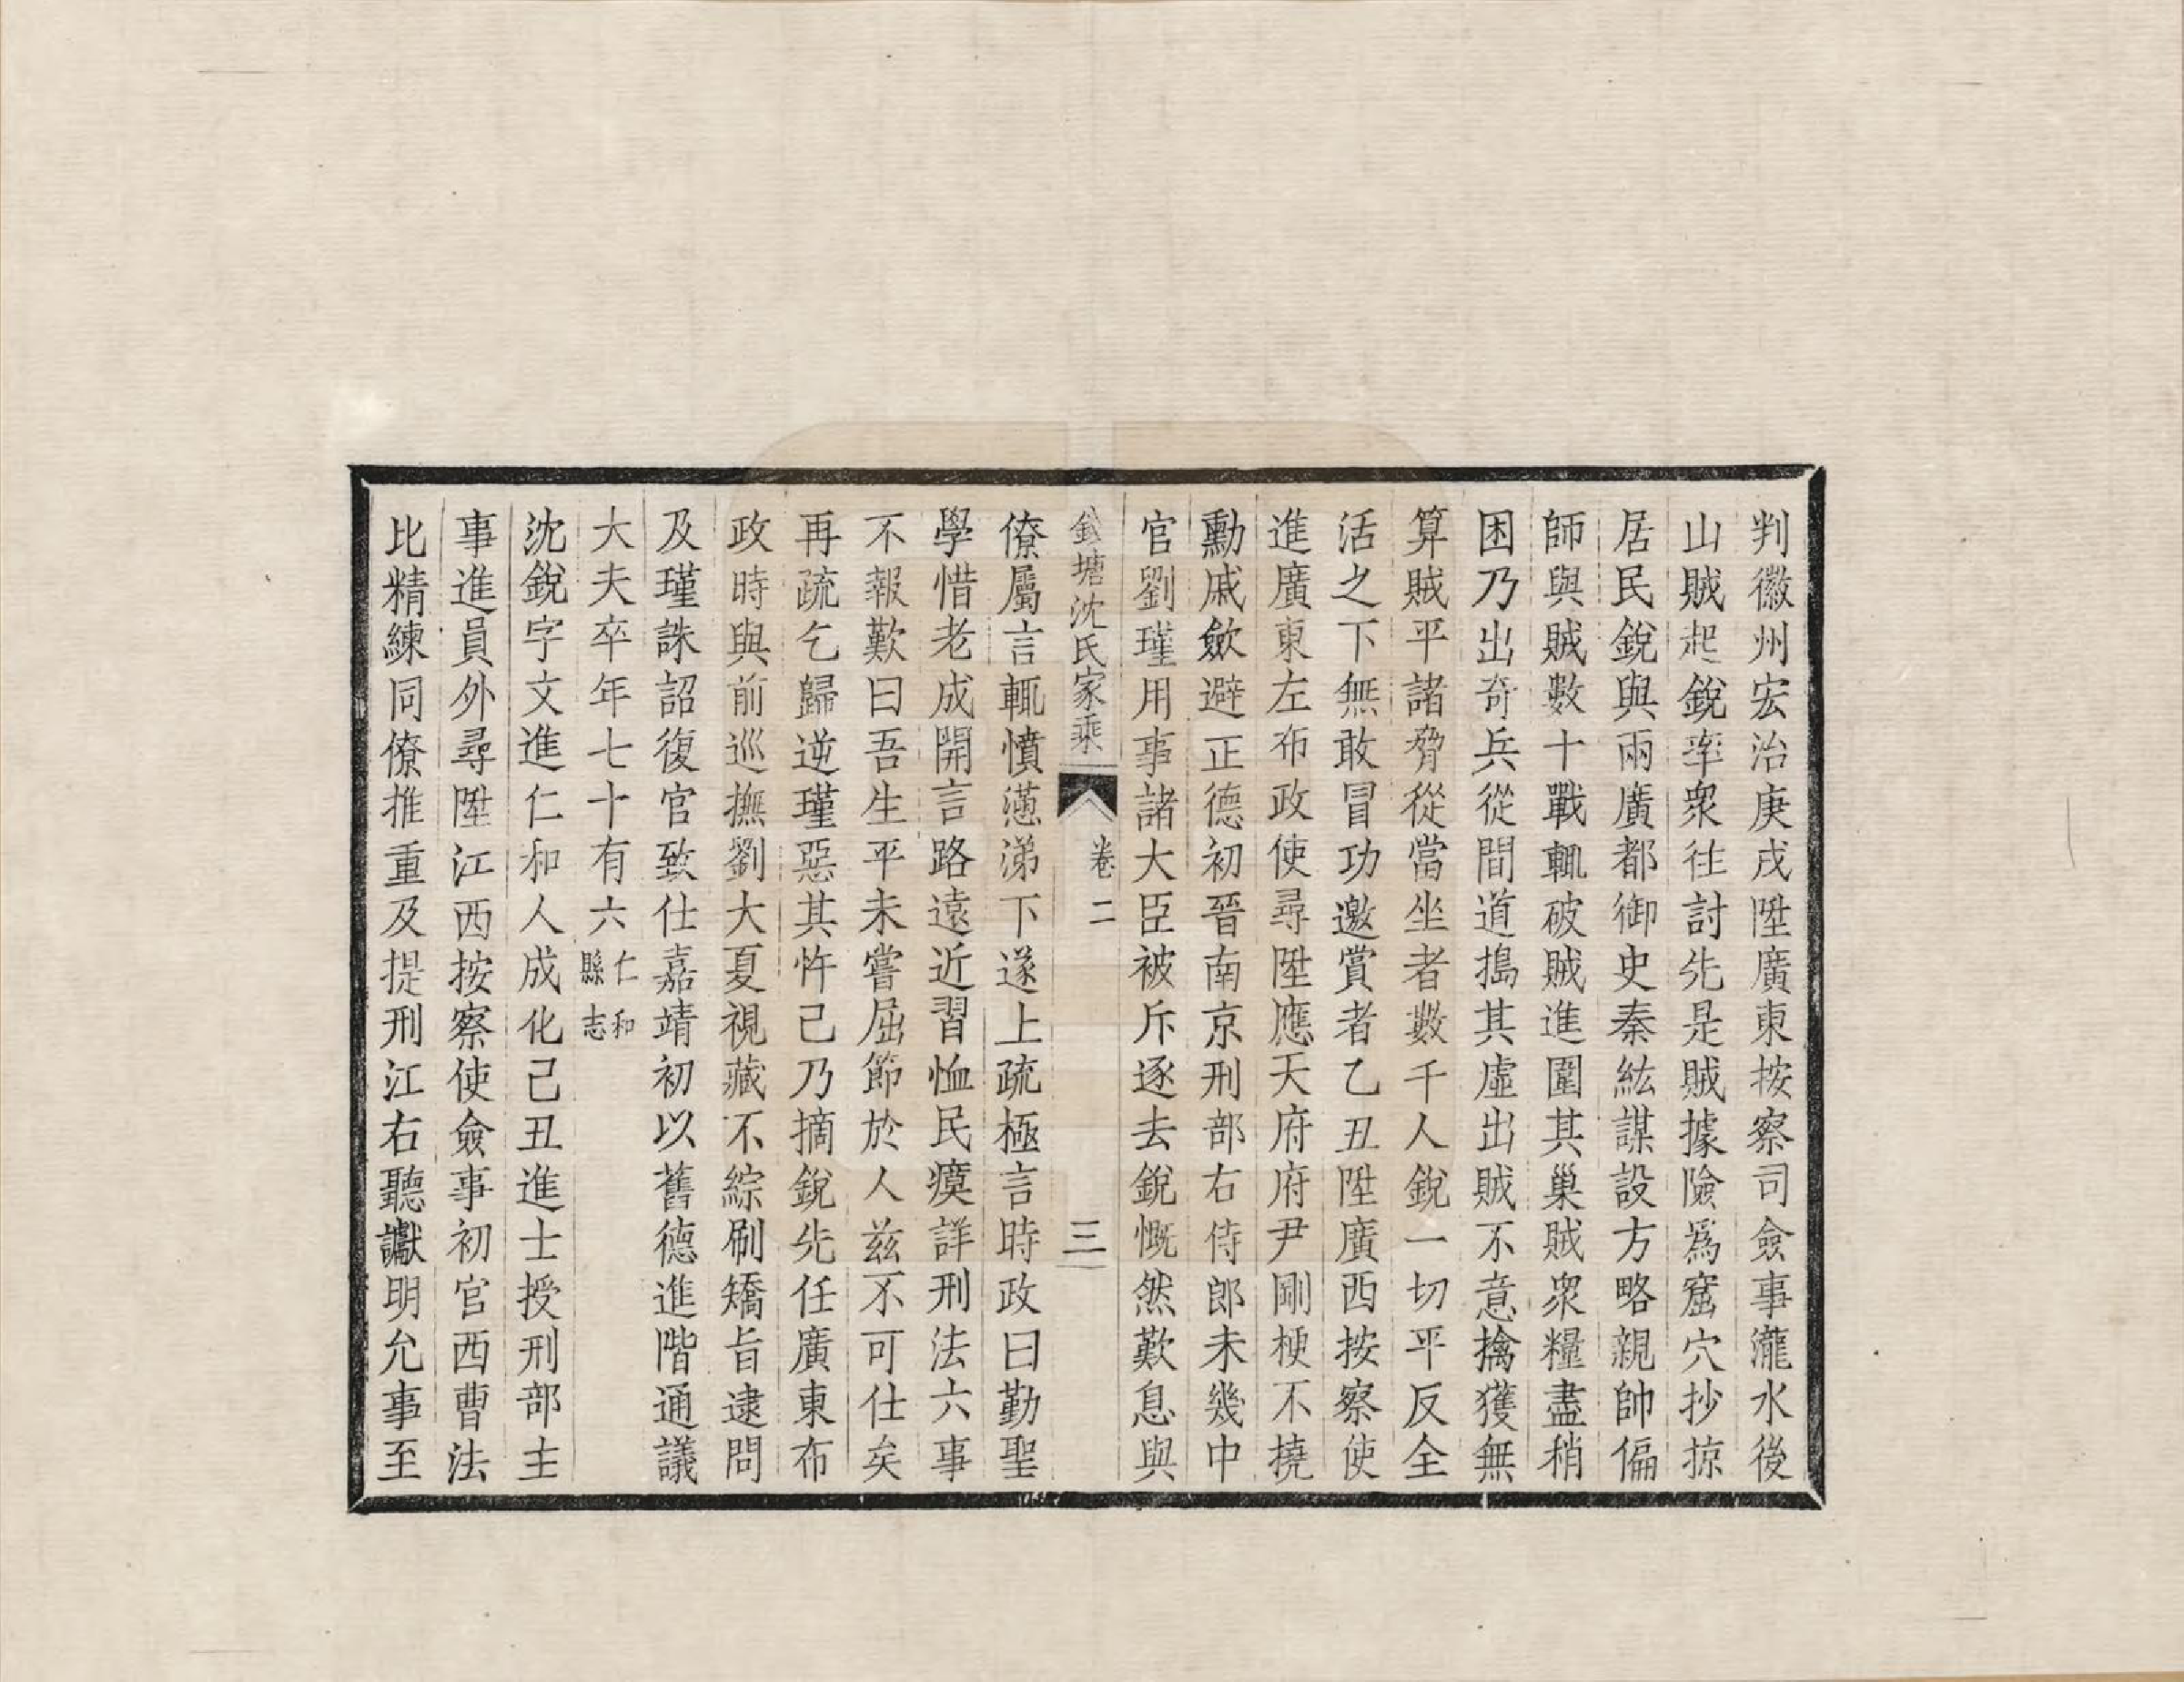 判徽州宏治庚戌陞廣東按察司僉事瀧水後
山賊起銳率衆往討先是賊據險爲窟穴抄掠
居民銳與兩廣都御史秦紘謀設方略親帥偏
師與賊數十戰輒破賊進圍其巢賊衆糧盡稍
困乃出奇兵從間道搗其虛出賊不意擒獲無
算賊平諸脅從當坐者數千人銳一切平反全
活之下無敢冒功邀賞者乙丑陞廣西按察使
進廣東左布政使尋陞應天府府尹剛梗不撓
勳戚歛避正德初晉南京刑部右侍郎未幾中
官劉瑾用事諸大臣被斥逐去銳慨然歎息與
錢塘沈氏家乘 卷二 三
僚屬言輒憤懣涕下遂上疏極言時政曰勤聖
學惜老成開言路遠近習恤民瘼詳刑法六事
不報歎曰吾生平未嘗屈節於人兹不可仕矣
再疏乞歸逆瑾惡其忤己乃摘銳先任廣東布
政時與前巡撫劉大夏視藏不綜刷矯旨逮問
及瑾誅詔復官致仕嘉靖初以舊德進階通議
大夫卒年七十有六仁和縣志
沈銳字文進仁和人成化己丑進士授刑部主
事進員外尋陞江西按察使僉事初官西曹法
比精練同僚推重及提刑江右聽讞明允事至